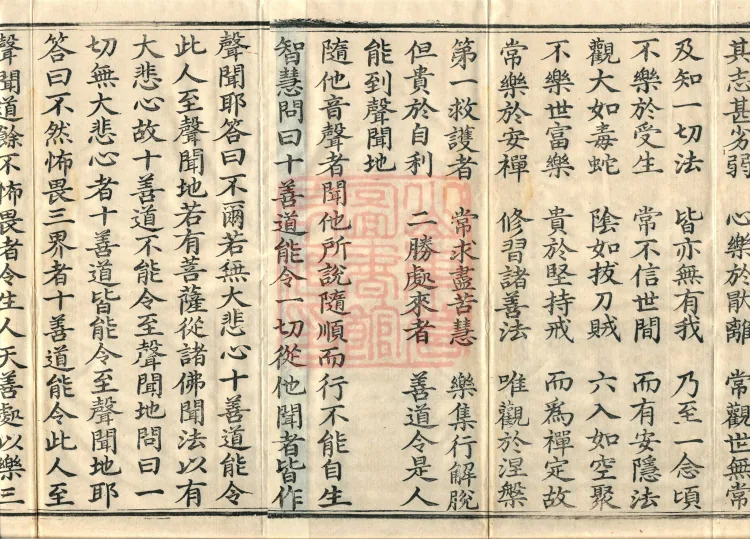 其志甚劣弱 心樂於厭離 常觀世無常
及知一切法 皆亦無有我 乃至一念頃
不樂於受生 常不信世間 而有安隱法
觀大如毒蛇 陰如拔刀賊 六入如空聚
不樂世富樂 貴於堅持戒 而為禪定故
常樂於安禪 修習諸善法 唯觀於涅槃
第一救護者 常求盡苦慧 樂集行解脫
但貴於自利 二勝處來者 善道令是人
能到聲聞地
隨他音聲者聞他所說隨順而行不能自生
智慧問曰十善道能令一切從他聞者皆作
聲聞耶答曰不爾若無大悲心十善道能令
此人至聲聞地若有菩薩從諸佛聞法以有
大悲心故十善道不能令至聲聞地問曰一
切無大悲心者十善道皆能令至聲聞地耶
答曰不然怖畏三界者十善道能令此人至
聲聞道餘不怖畏者令生人天善處以樂三